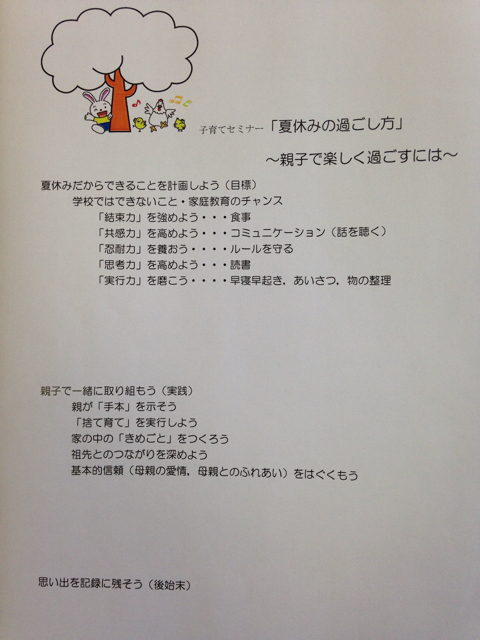 子育てセミナー「夏休みの過ごし方」
～親子で楽しく過ごすには～
夏休みだからできることを計画しよう（目標）
学校ではできないこと・家庭教育のチャンス
「結束力」を強めよう・・・食事
「共感力」を高めよう・・・コミュニケーション（話を聴く）
「忍耐力」を養おう・・・・ルールを守る
「思考力」を高めよう・・・読書
「実行力」を磨こう・・・・早寝早起き，あいさつ，物の整理
親子で一緒に取り組もう（実践）
親が「手本」を示そう
「捨て育て」を実行しよう
家の中の「きめごと」をつくろう
祖先とのつながりを深めよう
基本的信頼（母親の愛情，母親とのふれあい）をはぐくもう
思い出を記録に残そう（後始末）